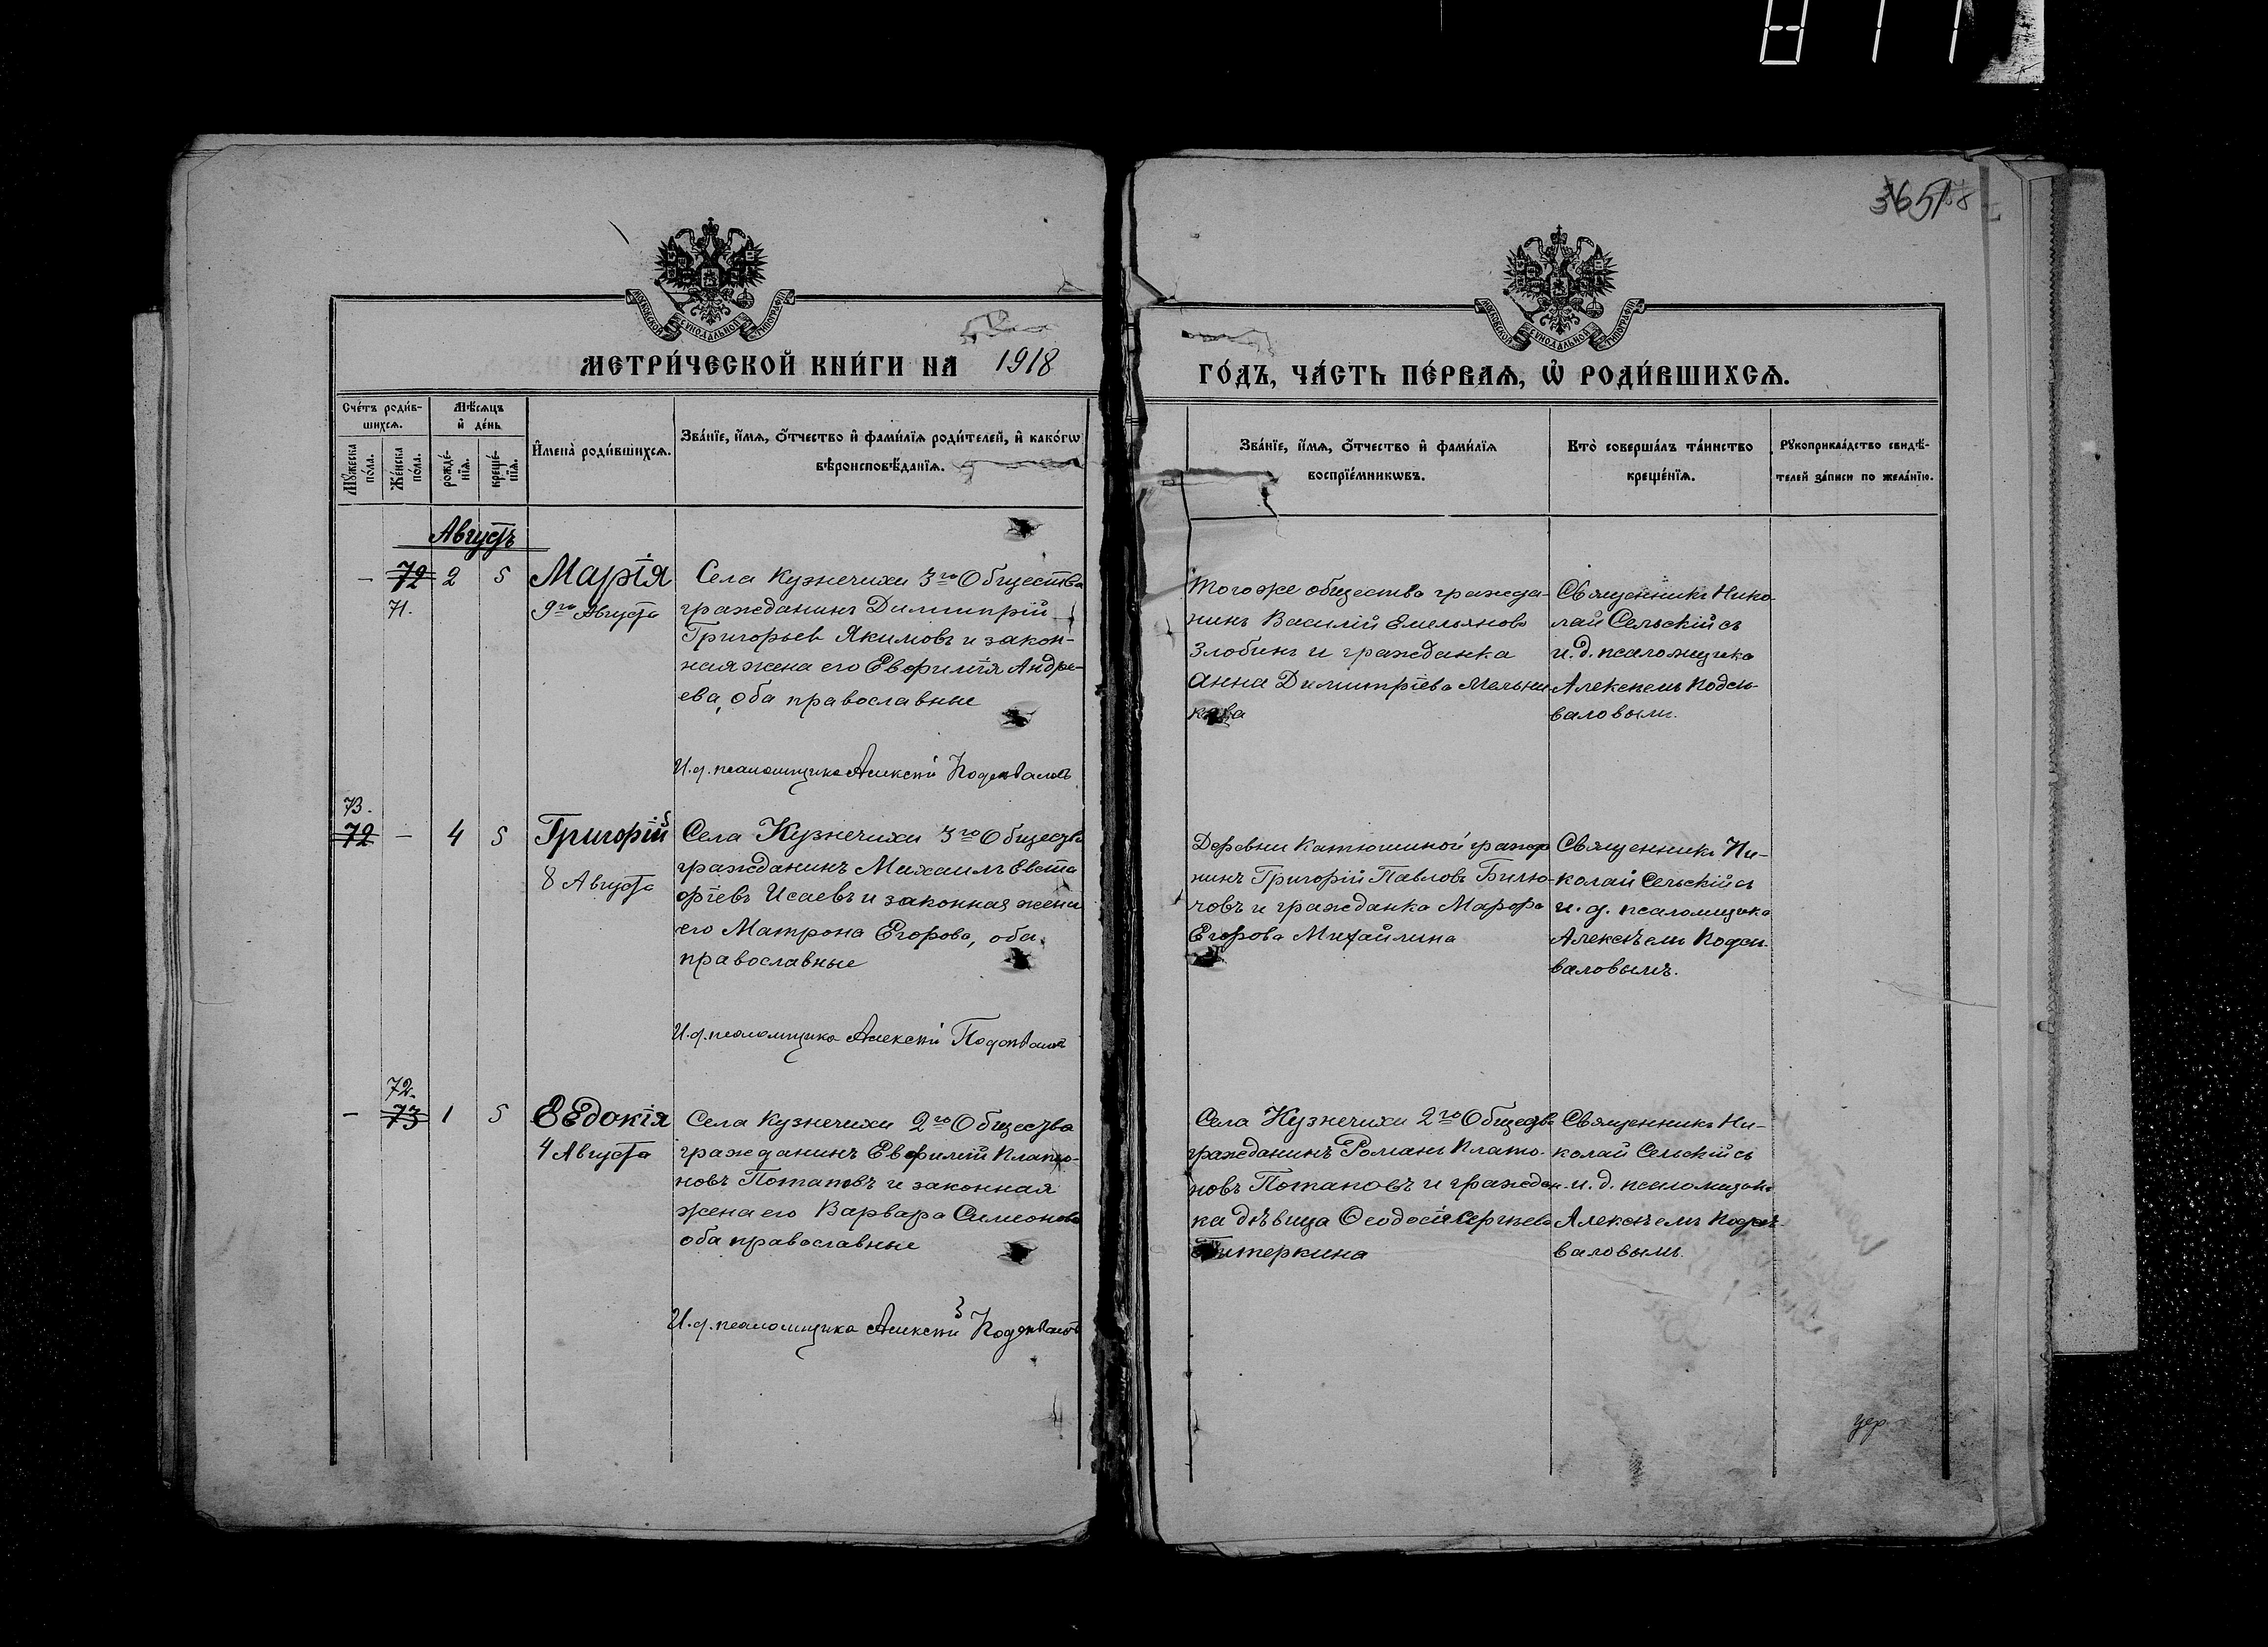 811
3651
МОСКОВСКОЙ СѴНОДАЛЬНОЙ ТИПОГРАФІИ
МОСКОВСКОЙ СѴНОДАЛЬНОЙ ТИПОГРАФІИ
МЕТРИ́ЧЕСКОЙ КНИ́ГИ НА 1918
ГО́ДЪ, ЧА́СТЬ ПЕ́РВАѦ, Ѡ РОДИ́ВШИХСѦ.
Сче́тъ роди́в-
шихсѧ.
Мꙋ́жеска по́ла.
Же́нска по́ла.
Мѣ́сѧцъ
и҆ де́нь
рожде́-
нїѧ.
креще́-
нїѧ.
И҆мена̀ роди́вшихсѧ.
Зва́нїе, и҆́мѧ, ѻ҆́тчество и҆ фами́лїѧ роди́телей, и҆ како́гѡ
вѣроисповѣ́данїѧ.
Зва́нїе, и҆́мѧ, ѻ҆́тчество и҆ фами́лїѧ
воспрїе́мникѡвъ.
Кто̀ соверша́лъ та́инство
креще́нїѧ.
Рꙋкоприкла́дство свидѣ́-
телей за́писи по жела́нїю.
Августъ
– 72 2 5 Марія
71.
9го Августа
Села Кузнечихи 3го Общества
гражданинъ Димитрій
Григорьев Якимовъ и закон-
ная жена его Евфимія Андре-
ева, оба православные
И.д. псаломщика Алексій Подсѣваловъ
Того же общества гражда-
нинъ Василій Емельянова
Злобинъ и гражданка
Анна Димитріева Мельни-
кова
Священникъ Нико-
лай Сельскій съ
и.д. псаломщика
Алексѣемъ Подсѣ-
валовымъ.
73.
72 – 4 5 Григорій
8 Августа
Села Кузнечихи 3го Общества
гражданинъ Михаилъ Евста
фіевъ Исаевъ и законная жена
его Матрона Егорова, оба
православные
И.д. псаломщика Алексій Подсѣваловъ
Деревни Катюшиной гражда
нинъ Григорій Павловъ Бирю-
ковъ и гражданка Марфа
Егорова Михайлина
Священникъ Ни-
колай Сельскій съ
и.д. псаломщика
Алексѣемъ Подсѣ-
валовымъ.
72.
– 73 1 5 Евдокія
4 Августа
Села Кузнечихи 2го Общества
гражданинъ Евфимій Плато-
новъ Потаповъ и законная
жена его Варвара Симеонова
оба православные
И.д. псаломщика Алексій Подсѣваловъ
Села Кузнечихи 2го Общества
гражданинъ Романъ Плато-
новъ Потаповъ и граждан-
ка дѣвица Ѳеодосія Сергѣева
Питеркина
Священникъ Ни-
колай Сельскій съ
и.д. псаломщика
Алексѣемъ Подсѣ-
валовымъ.